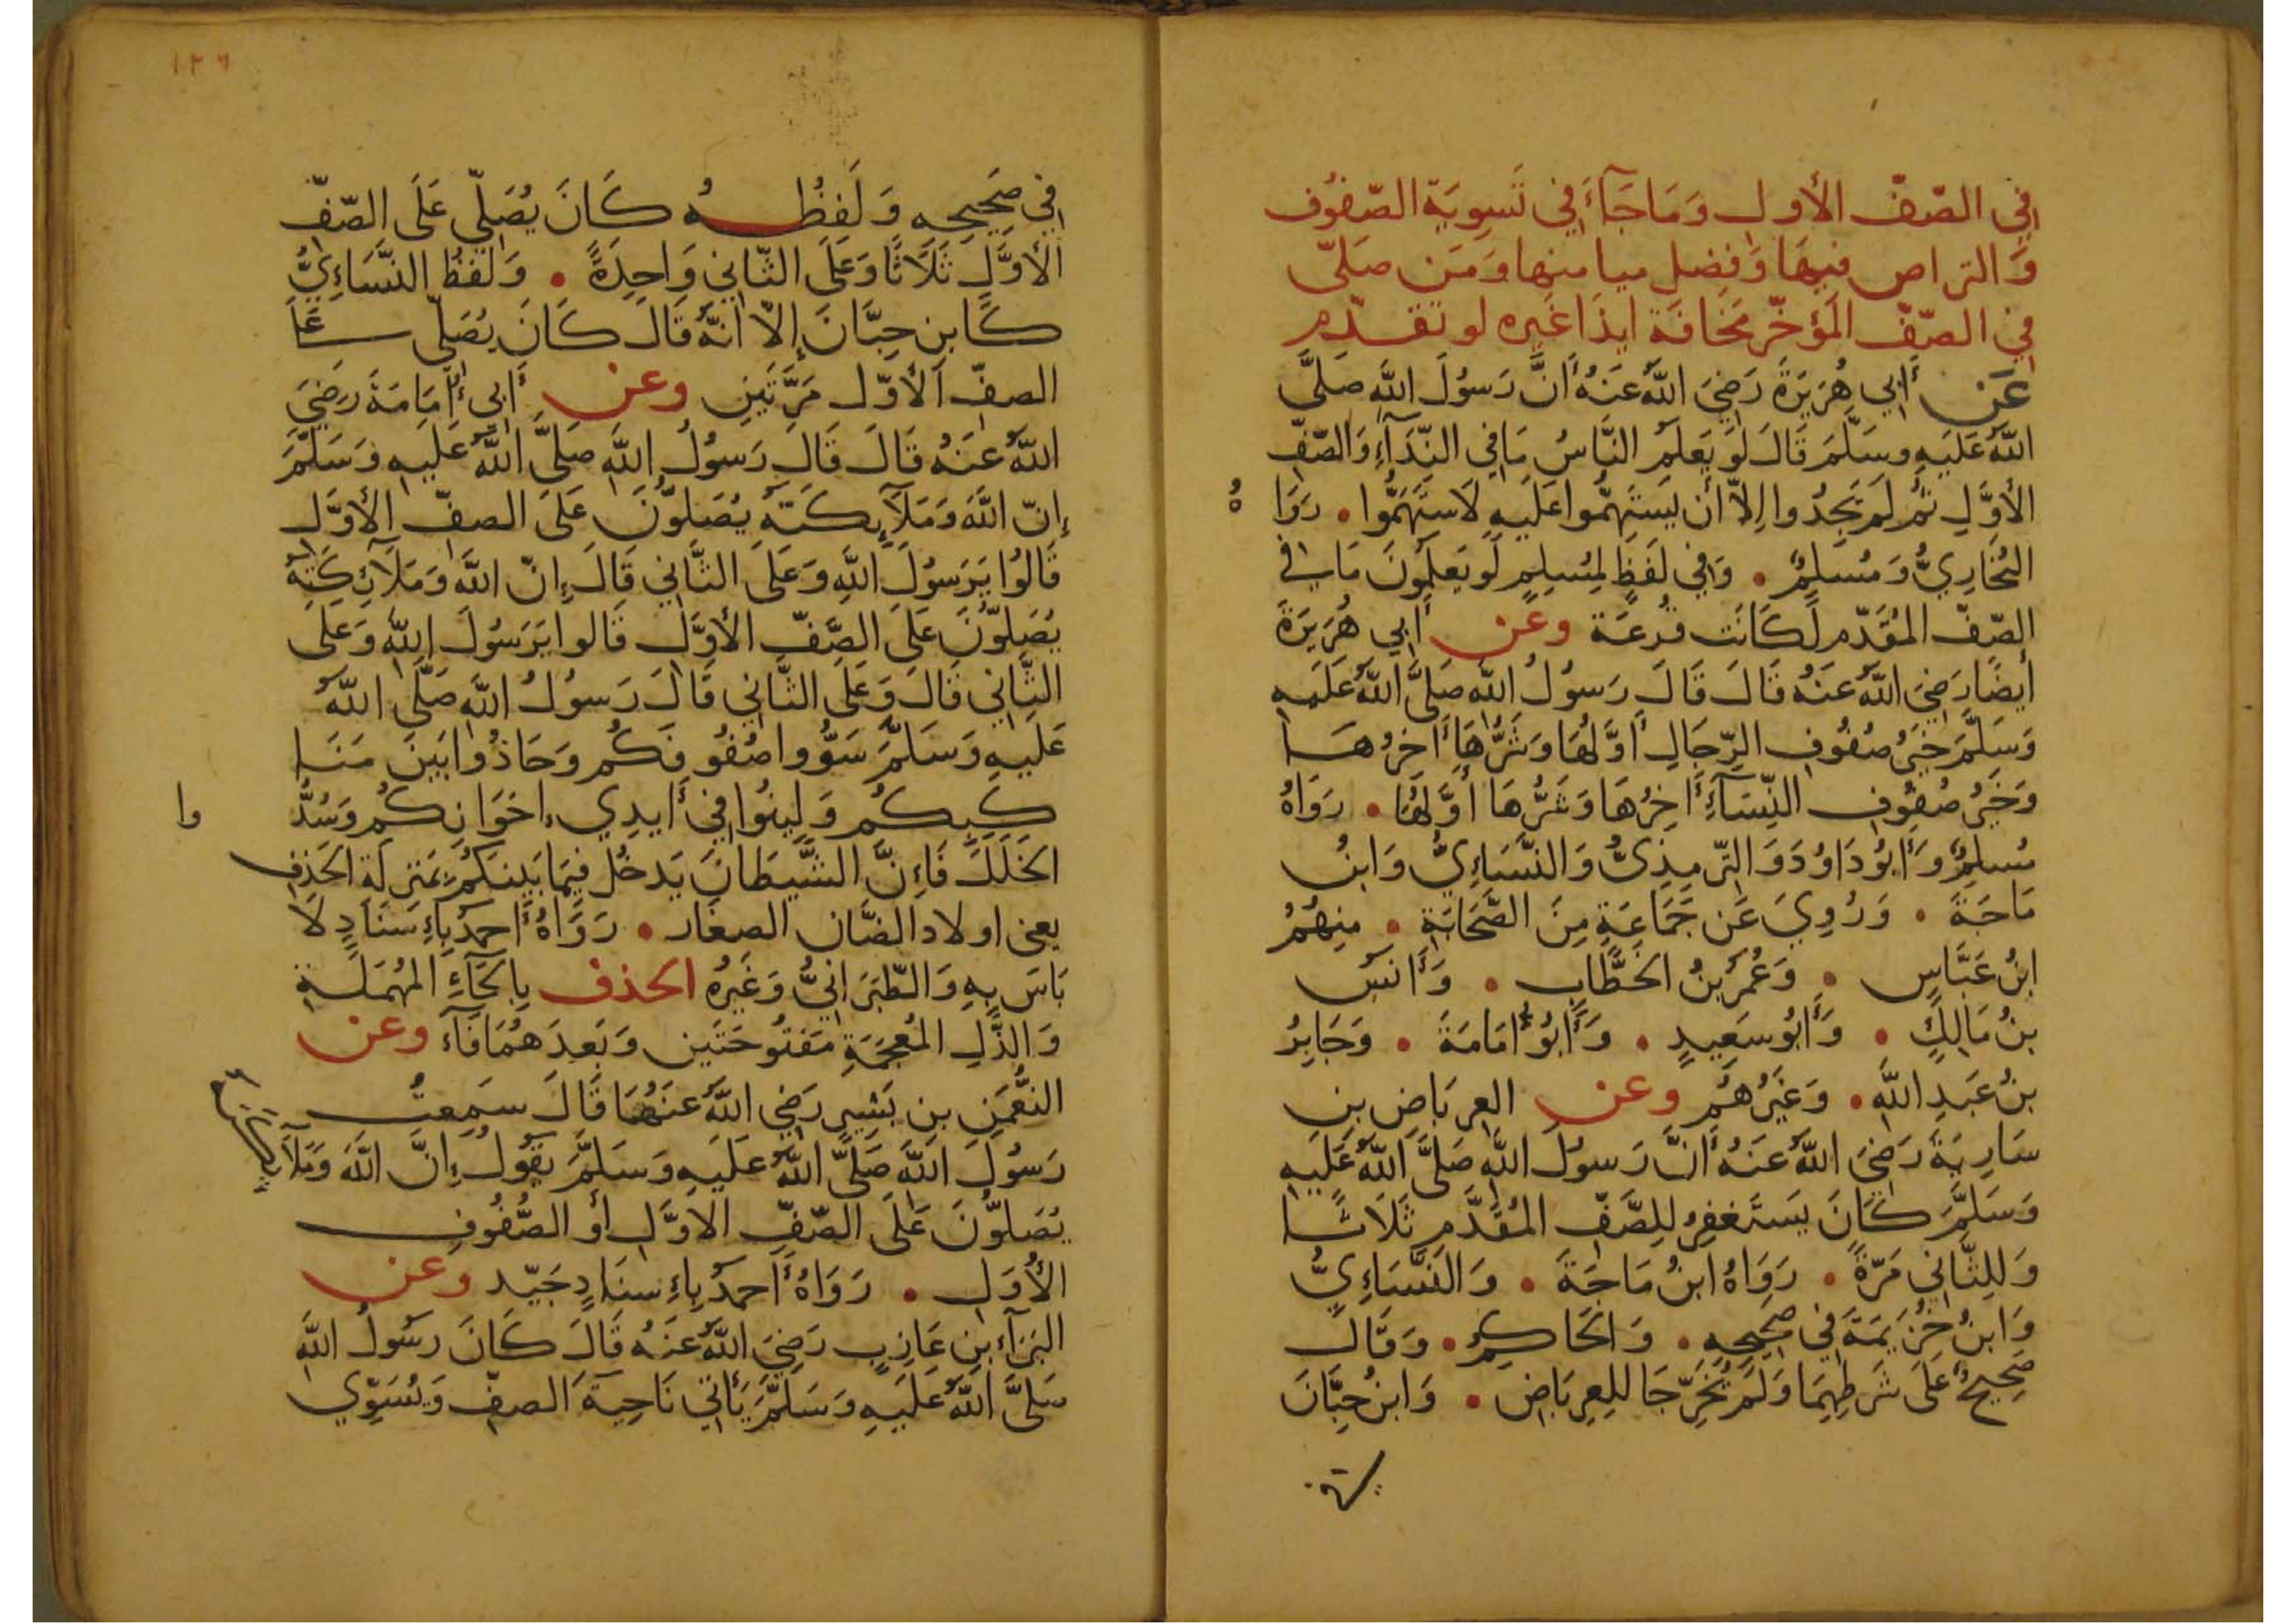 في الصّفّ الأول وَمَا جَآءَ في تَسوِيَة الصّفُوف
وَالتراص فيهَا وَفضل ميامنها وَمَن صَلّى
في الصّفّ المؤخّر مَخَافَة ايذَا غَيره لو تقدّم
عَن أَبي هُرَيرَةَ رَضيَ اللَّهُ عَنهُ أَنَّ رَسُولَ اللَّهِ صَلَّى
اللَّهُ عَلَيهِ وسَلَّمَ قَالَ لَو يَعلَمُ النَّاسُ مَا في النِّدَآءِ وَالصّفّ
الأوَّلِ ثُمَّ لَم يَجِدُوا إلاّ أَن يَستَهِمُّوا عَلَيهِ لَاستَهَمُّوا . رَوَاهُ
البُخَارِيُّ وَمُسلِمٌ . وَفي لَفظٍ لِمُسلِمٍ لَو يَعلَمُونَ مَا في
الصّفّ المُقَدّم لَكَانَت قُرعَة وعن أَبي هُرَيرَةَ
أَيضًا رَضِيَ اللَّهُ عَنهُ قَالَ قَالَ رَسُولُ اللَّهِ صَلَّى اللَّهُ عَلَيهِ
وَسَلَّمَ خَيرُ صُفُوفِ الرِّجَالِ أَوَّلُهَا وَشَرُّهَا أَاخِرُهَا
وَخَيرُ صُفُوفِ النِّسَآءِ أَاخِرُهَا وَشَرُّهَا أَوَّلُهَا . رَوَاهُ
مُسلِمٌ وَأَبُو دَاوُدَ وَالتِّرمِذِيُّ وَالنَّسَاءِيُّ وَابنُ
مَاجَةَ . وَرُوِيَ عَن جَمَاعَةٍ مِنَ الصَّحَابَةِ . مِنهُمُ
ابنُ عَبَّاسٍ . وَعُمَرُ بنُ الخَطَّابِ . وَأَنَسُ
بنُ مَالِكٍ . وَأَبُو سَعِيدٍ . وَأَبُو أُمَامَةَ . وَجَابِرُ
بنُ عَبدِ اللَّهِ . وَغَيرُهُم وعن العِربَاضِ بنِ
سَارِيَةَ رَضيَ اللَّهُ عَنهُ أَنَّ رَسُولَ اللَّهِ صَلَّى اللَّهُ عَلَيهِ
وَسَلَّمَ كَانَ يَستَغفِرُ لِلصَّفّ المُقَدَّمِ ثَلَاثًا
وَلِلثَّاني مَرّةً . رَوَاهُ ابنُ مَاجَةَ . وَالنَّسَاءِيُّ
وَابنُ خُزَيمَةَ في صَحِيحِهِ . وَالحَاكِمُ . وَقَالَ
صَحِيحٌ عَلَى شَرطِهِمَا وَلَم يُخَرِّجَا للعِربَاض . وَابنُ حِبَّانَ
١٢٦
في صَحِيحِهِ وَلَفظُهُ كَانَ يُصَلّي عَلَى الصّفّ
الأوَّلِ ثَلَاثًا وَعَلَى الثَّاني وَاحِدَةً . وَلَفظُ النَّسَاءِيُّ
كَابنِ حِبَّانَ إِلاّ أَنّهُ قَالَ كَانَ يُصَلّي عَلَى
الصفّ الأوّل مَرَّتَينِ وعن أَبي أُمَامَةَ رَضِيَ
اللَّهُ عَنهُ قَالَ قَالَ رَسُولُ اللَّهِ صَلَّى اللَّهُ عَلَيهِ وَسَلَّمَ
إنّ اللَّهَ وَمَلَآئِكَتَهُ يُصَلُّونَ عَلَى الصفّ الأوَّلِ
قَالُوا يَرَسُولَ اللَّهِ وَعَلَى الثَّاني قَالَ إنّ اللَّهَ وَمَلَآئِكَتَهُ
يُصَلّونَ عَلَى الصَّفّ الأوَّلِ قَالوا يَرَسُولَ اللَّهِ وَعَلَى
الثَّاني قَالَ وَعَلَى الثَّاني قَالَ رَسولُ اللَّهِ صَلَّى اللَّهُ
عَلَيهِ وَسَلَّمَ سَوُّوا صُفُوفَكُم وَحَاذُوا بَينَ مَنَا
كِبِكُم وَلِينُوا في أَيدِي إخوَانِكُم وَسُدُّوا
الخَلَلَ فَإِنَّ الشَّيطَانَ يَدخُل فيمَا بَينَكُم بِمَنزلَةِ الحَذفِ
يعني اولاد الضَّان الصغار . رَوَاهُ أَحمدُ بِإِسنَادٍ لَا
بَاسَ بِهِ وَالطّبَرَانيُّ وَغَيرُهُ الحذف بِالحَآءِ المُهمَلَةِ
وَالذَّلِ المُعجَمَةِ مَفتُوحَتَينِ وَبَعدَهُمَا فَآءٌ وعن
النُّعمَنِ بنِ بَشِيرٍ رَضيَ اللَّهُ عَنهُمَا قَالَ سَمِعتُ
رَسُولَ اللَّهِ صَلَّى اللَّهُ عَلَيهِ وَسَلَّمَ يَقُولُ إِنَّ اللَّهَ وَمَلَآئِكَتَهُ
يُصَلُّونَ عَلَى الصّفّ الأوَّلِ أَو الصُّفُوفِ
الأُوَلِ . رَوَاهُ أَحمدُ بِإِسنَادٍ جَيّد وعن
البَرَآءِ بنِ عَازِبٍ رَضِيَ اللَّهُ عَنهُ قَالَ كَانَ رَسُولُ اللَّهِ
صَلَّى اللَّهُ عَلَيهِ وَسَلَّمَ يَأتي نَاحِيَةَ الصفّ وَيُسَوّي